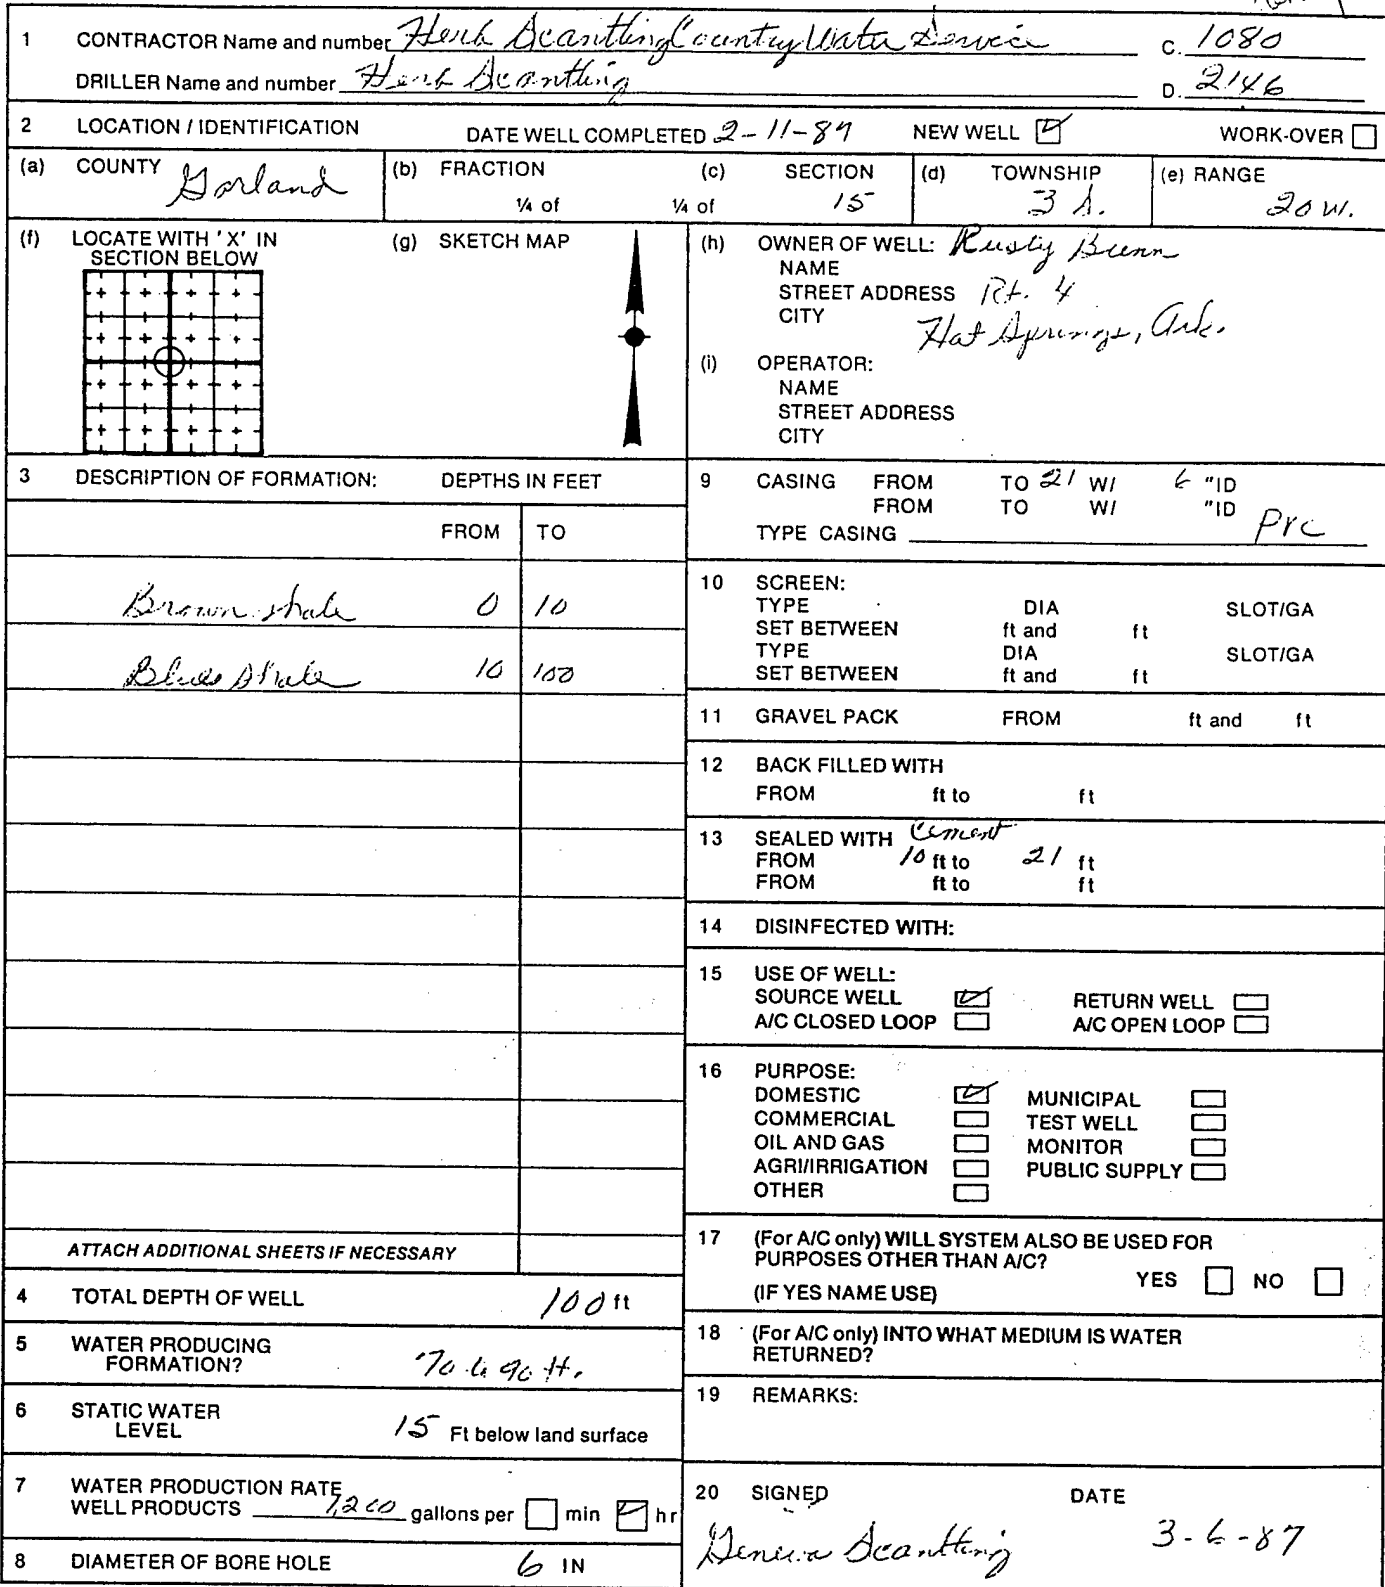 1 CONTRACTOR Name and number Herb Scantling Country Water Service C. 1080
DRILLER Name and number Herb Scantling D. 2146
2 LOCATION / IDENTIFICATION DATE WELL COMPLETED 2-11-87 NEW WELL WORK-OVER
(a) COUNTY Garland (b) FRACTION ¼ of ¼ of (c) SECTION 15 (d) TOWNSHIP 3 S. (e) RANGE 20 W.
(f) LOCATE WITH 'X' IN SECTION BELOW
(g) SKETCH MAP
(h) OWNER OF WELL: Rusty Bunn
NAME
STREET ADDRESS Rt. 4
CITY Hot Springs, Ark.
(i) OPERATOR:
NAME
STREET ADDRESS
CITY
3 DESCRIPTION OF FORMATION: DEPTHS IN FEET
FROM TO
Brown shale 0 10
Blue Shale 10 100
ATTACH ADDITIONAL SHEETS IF NECESSARY
4 TOTAL DEPTH OF WELL 100 ft
5 WATER PRODUCING FORMATION? 70 to 90 ft.
6 STATIC WATER LEVEL 15 Ft below land surface
7 WATER PRODUCTION RATE
WELL PRODUCTS 1,200 gallons per min hr
8 DIAMETER OF BORE HOLE 6 IN
9 CASING FROM TO 21 W/ 6 "ID
FROM TO W/ "ID
TYPE CASING PVC
10 SCREEN:
TYPE DIA SLOT/GA
SET BETWEEN ft and ft
TYPE DIA SLOT/GA
SET BETWEEN ft and ft
11 GRAVEL PACK FROM ft and ft
12 BACK FILLED WITH
FROM ft to ft
13 SEALED WITH Cement
FROM 10 ft to 21 ft
FROM ft to ft
14 DISINFECTED WITH:
15 USE OF WELL:
SOURCE WELL RETURN WELL
A/C CLOSED LOOP A/C OPEN LOOP
16 PURPOSE:
DOMESTIC MUNICIPAL
COMMERCIAL TEST WELL
OIL AND GAS MONITOR
AGRI/IRRIGATION PUBLIC SUPPLY
OTHER
17 (For A/C only) WILL SYSTEM ALSO BE USED FOR
PURPOSES OTHER THAN A/C?
YES NO
(IF YES NAME USE)
18 (For A/C only) INTO WHAT MEDIUM IS WATER
RETURNED?
19 REMARKS:
20 SIGNED DATE
Geneva Scantling 3-6-87